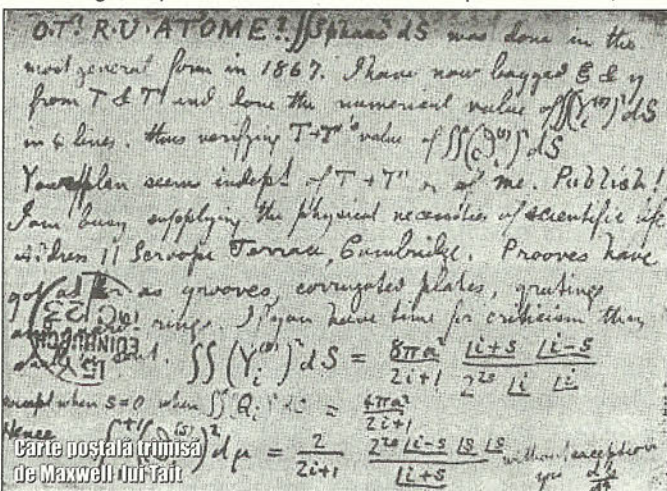 O.T! R.U. AT 'OME? ∬Spharc² dS was done in the
most general form in 1867. I have now bagged ξ & η
from T & T' and done the numerical value of ∬(Y_i^(s))² dS
in 4 lines. thus verifying T+T''s value of ∬(ϑ_i^(s))² dS
Your plan seems indept. of T+T' or of me. Publish!
I am busy supplying the physical necessities of scientific life
address 11 Scroope Terrace, Cambridge. Prooves have
got as far as grooves, corrugated plates, gratings
rings. If you have time for criticism then
∬(Y_i^(s))² dS = 8πa² / 2i+1 |i+s |i-s / 2^2s |i |i
EDINBURGH
except when s=0 when ∬ Q_i² dS = 4πa² / 2i+1
Hence ∫+1 (s))² dμ = 2 / 2i+1 2^2s |i-s |s |s / |i+s without exception
Carte poștală trimisă
de Maxwell lui Tait